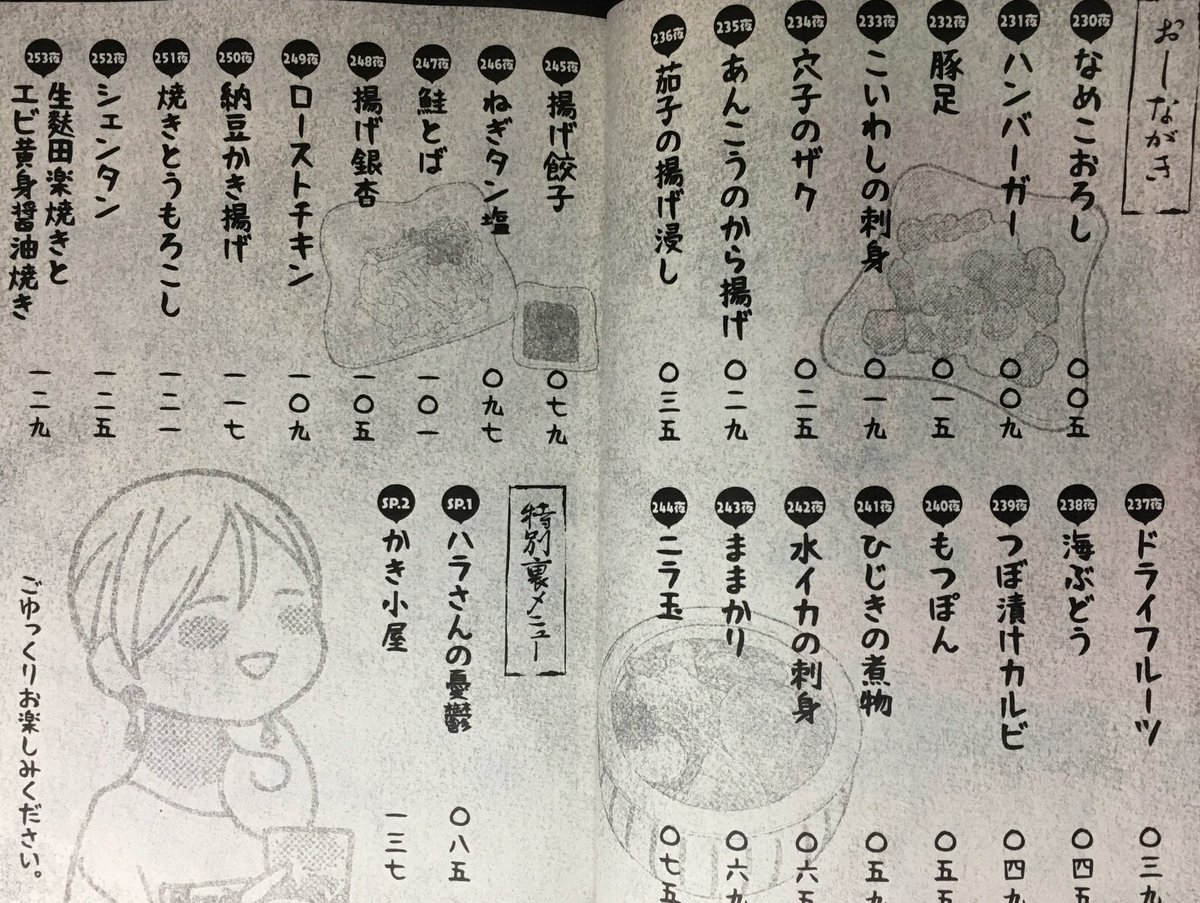 おーしながき
230夜 なめこおろし 〇〇五
231夜 ハンバーガー 〇〇九
232夜 豚足 〇一五
233夜 こいわしの刺身 〇一九
234夜 穴子のザク 〇二五
235夜 あんこうのから揚げ 〇二九
236夜 茄子の揚げ浸し 〇三五
237夜 ドライフルーツ 〇三九
238夜 海ぶどう 〇四五
239夜 つぼ漬けカルビ 〇四九
240夜 もつぽん 〇五五
241夜 ひじきの煮物 〇五九
242夜 水イカの刺身 〇六五
243夜 ままかり 〇六九
244夜 ニラ玉 〇七五
245夜 揚げ餃子 〇七九
246夜 ねぎタン塩 〇九七
247夜 鮭とば 一〇一
248夜 揚げ銀杏 一〇五
249夜 ローストチキン 一〇九
250夜 納豆かき揚げ 一一七
251夜 焼きとうもろこし 一二一
252夜 シェンタン 一二五
253夜 生麩田楽焼きと
エビ黄身醤油焼き 一二九
特別裏メニュー
SP.1 ハラさんの憂鬱 〇八五
SP.2 かき小屋 一三七
ごゆっくりお楽しみください。